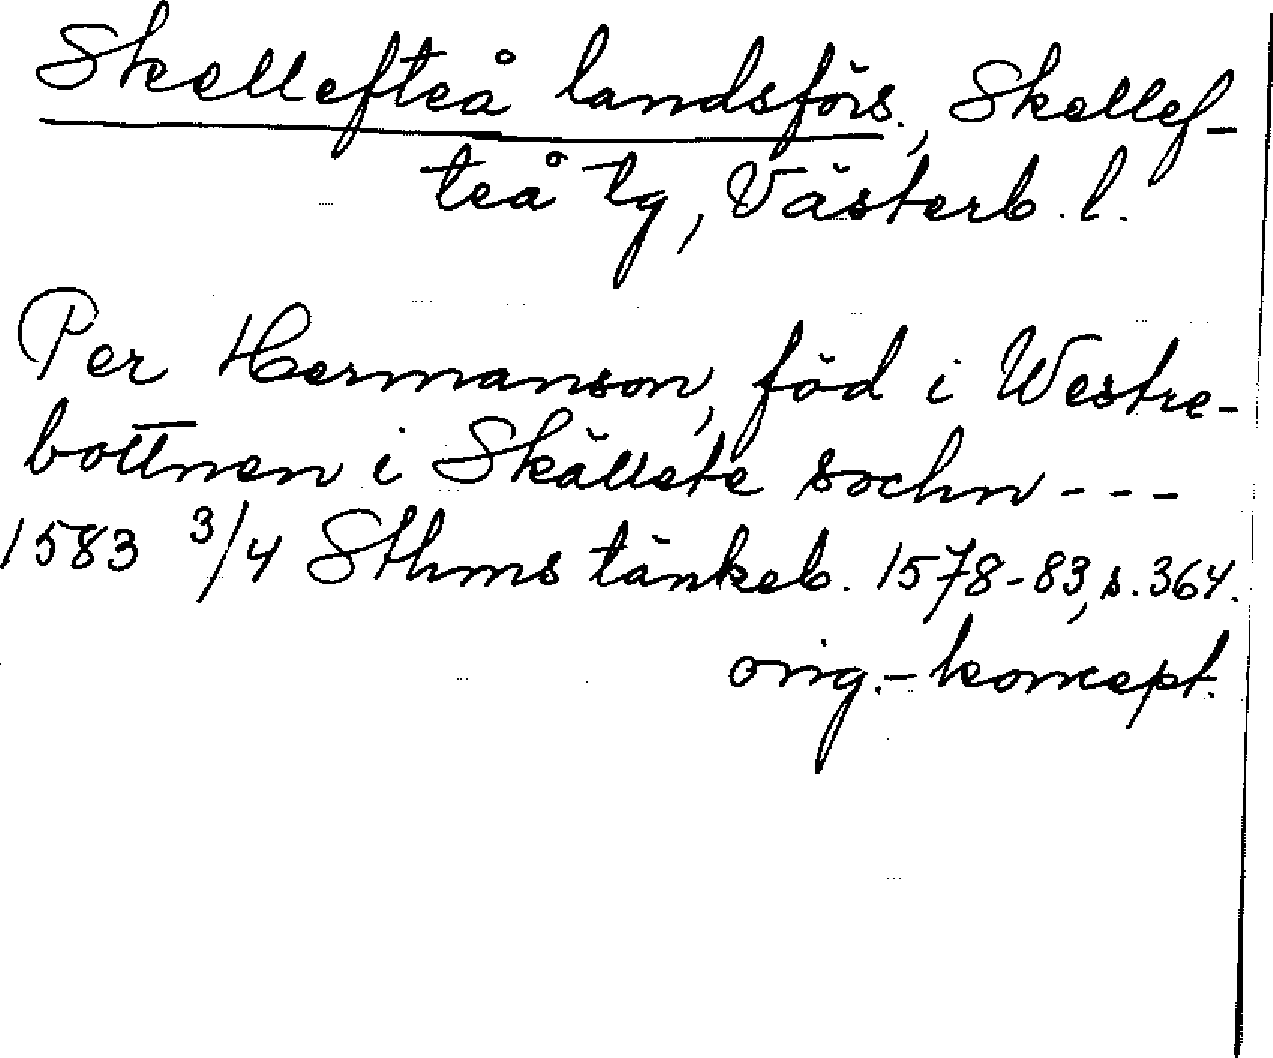 Skellefteå landsförs., Skellef-
teå tg, Västerb. l.
Per Hermanson, föd i Westre-
bottnen i Skällete sochn - - -
1583 3/4 Sthms tänkeb. 1578-83, s. 364.
orig.-koncept.